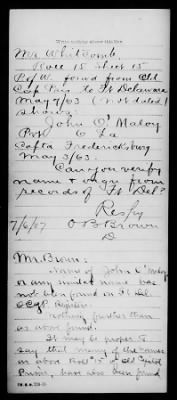 Write nothing above this line
Mr. Whitcomb.
Roll 15 Sheet 15
P. of W. forwd from Old
Cap Pris to Ft Delaware
May 7/63 (not dated)
Shows
John O' Maloy
Pvt 6 La
Captd Fredericksburg
May 3/63.
Can you verify
name & organ from
records of Ft Del?
Resfy
7/6/07 O B Brown
D
Mr. Brown:
Name of John O'Maloy
or any similar name has
not been found on Ft. Del.
Register.
Nothing further than
as above found.
It may be proper to
say that many of the names
on above Roll #15 of Old Capitol
Prison, have also been found